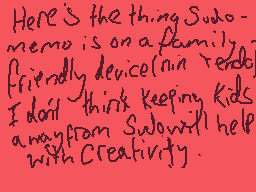 Here's the thing Sudo-
memo is on a family-
friendly device(nin Tendo)
I don't think keeping kids
away from Sudo will help
with creativity.